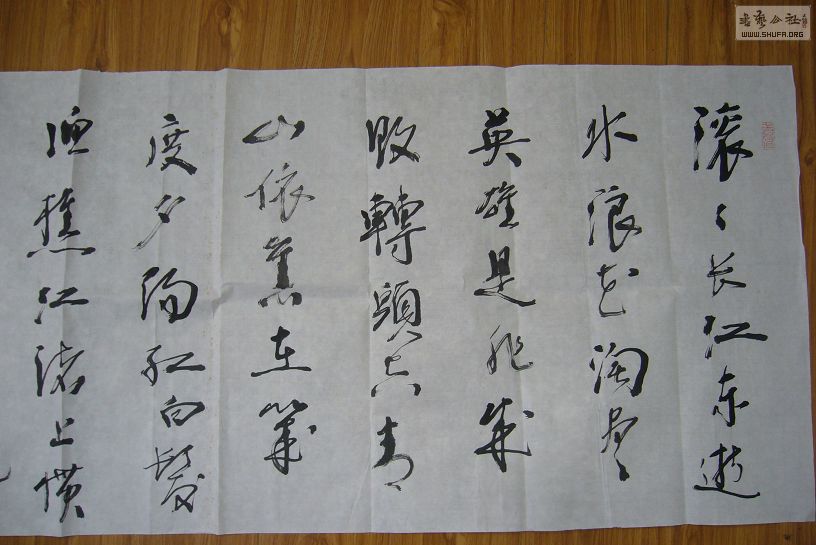 滚〻长江东逝
水浪花淘尽
英雄是非成
败轉頭空青
山依舊在幾
度夕陽红白髮
渔樵江渚上惯
書藝公社
WWW.SHUFA.ORG